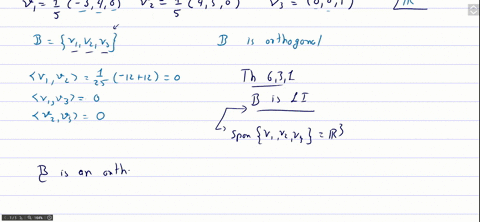 v₁ = 1/5 (-3, 4, 0) v₂ = 1/5 (4, 3, 0) v₃ = (0, 0, 1) ℝ
B = {v₁, v₂, v₃} B is orthogonal
<v₁, v₂> = 1/25 (-12+12) = 0
<v₁, v₃> = 0
<v₂, v₃> = 0
Th 6,3,1
B is LI
span {v₁, v₂, v₃} = ℝ³
B is an orth.